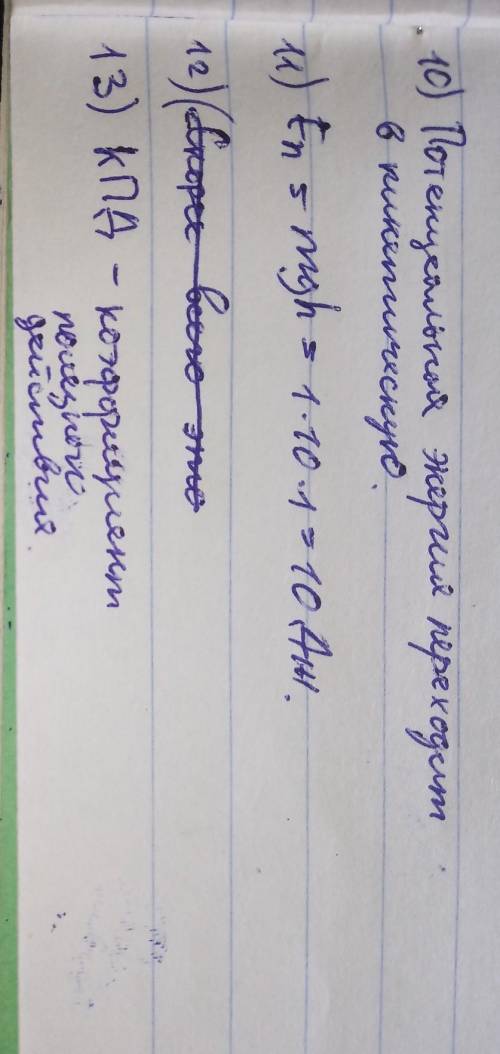 10) Потенциальная энергия переходит
в кинетическую.
11) Eп = mgh = 1·10·1 = 10 Дж.
12) (Скорее всего это
13) КПД - коэффициент
полезного
действия.